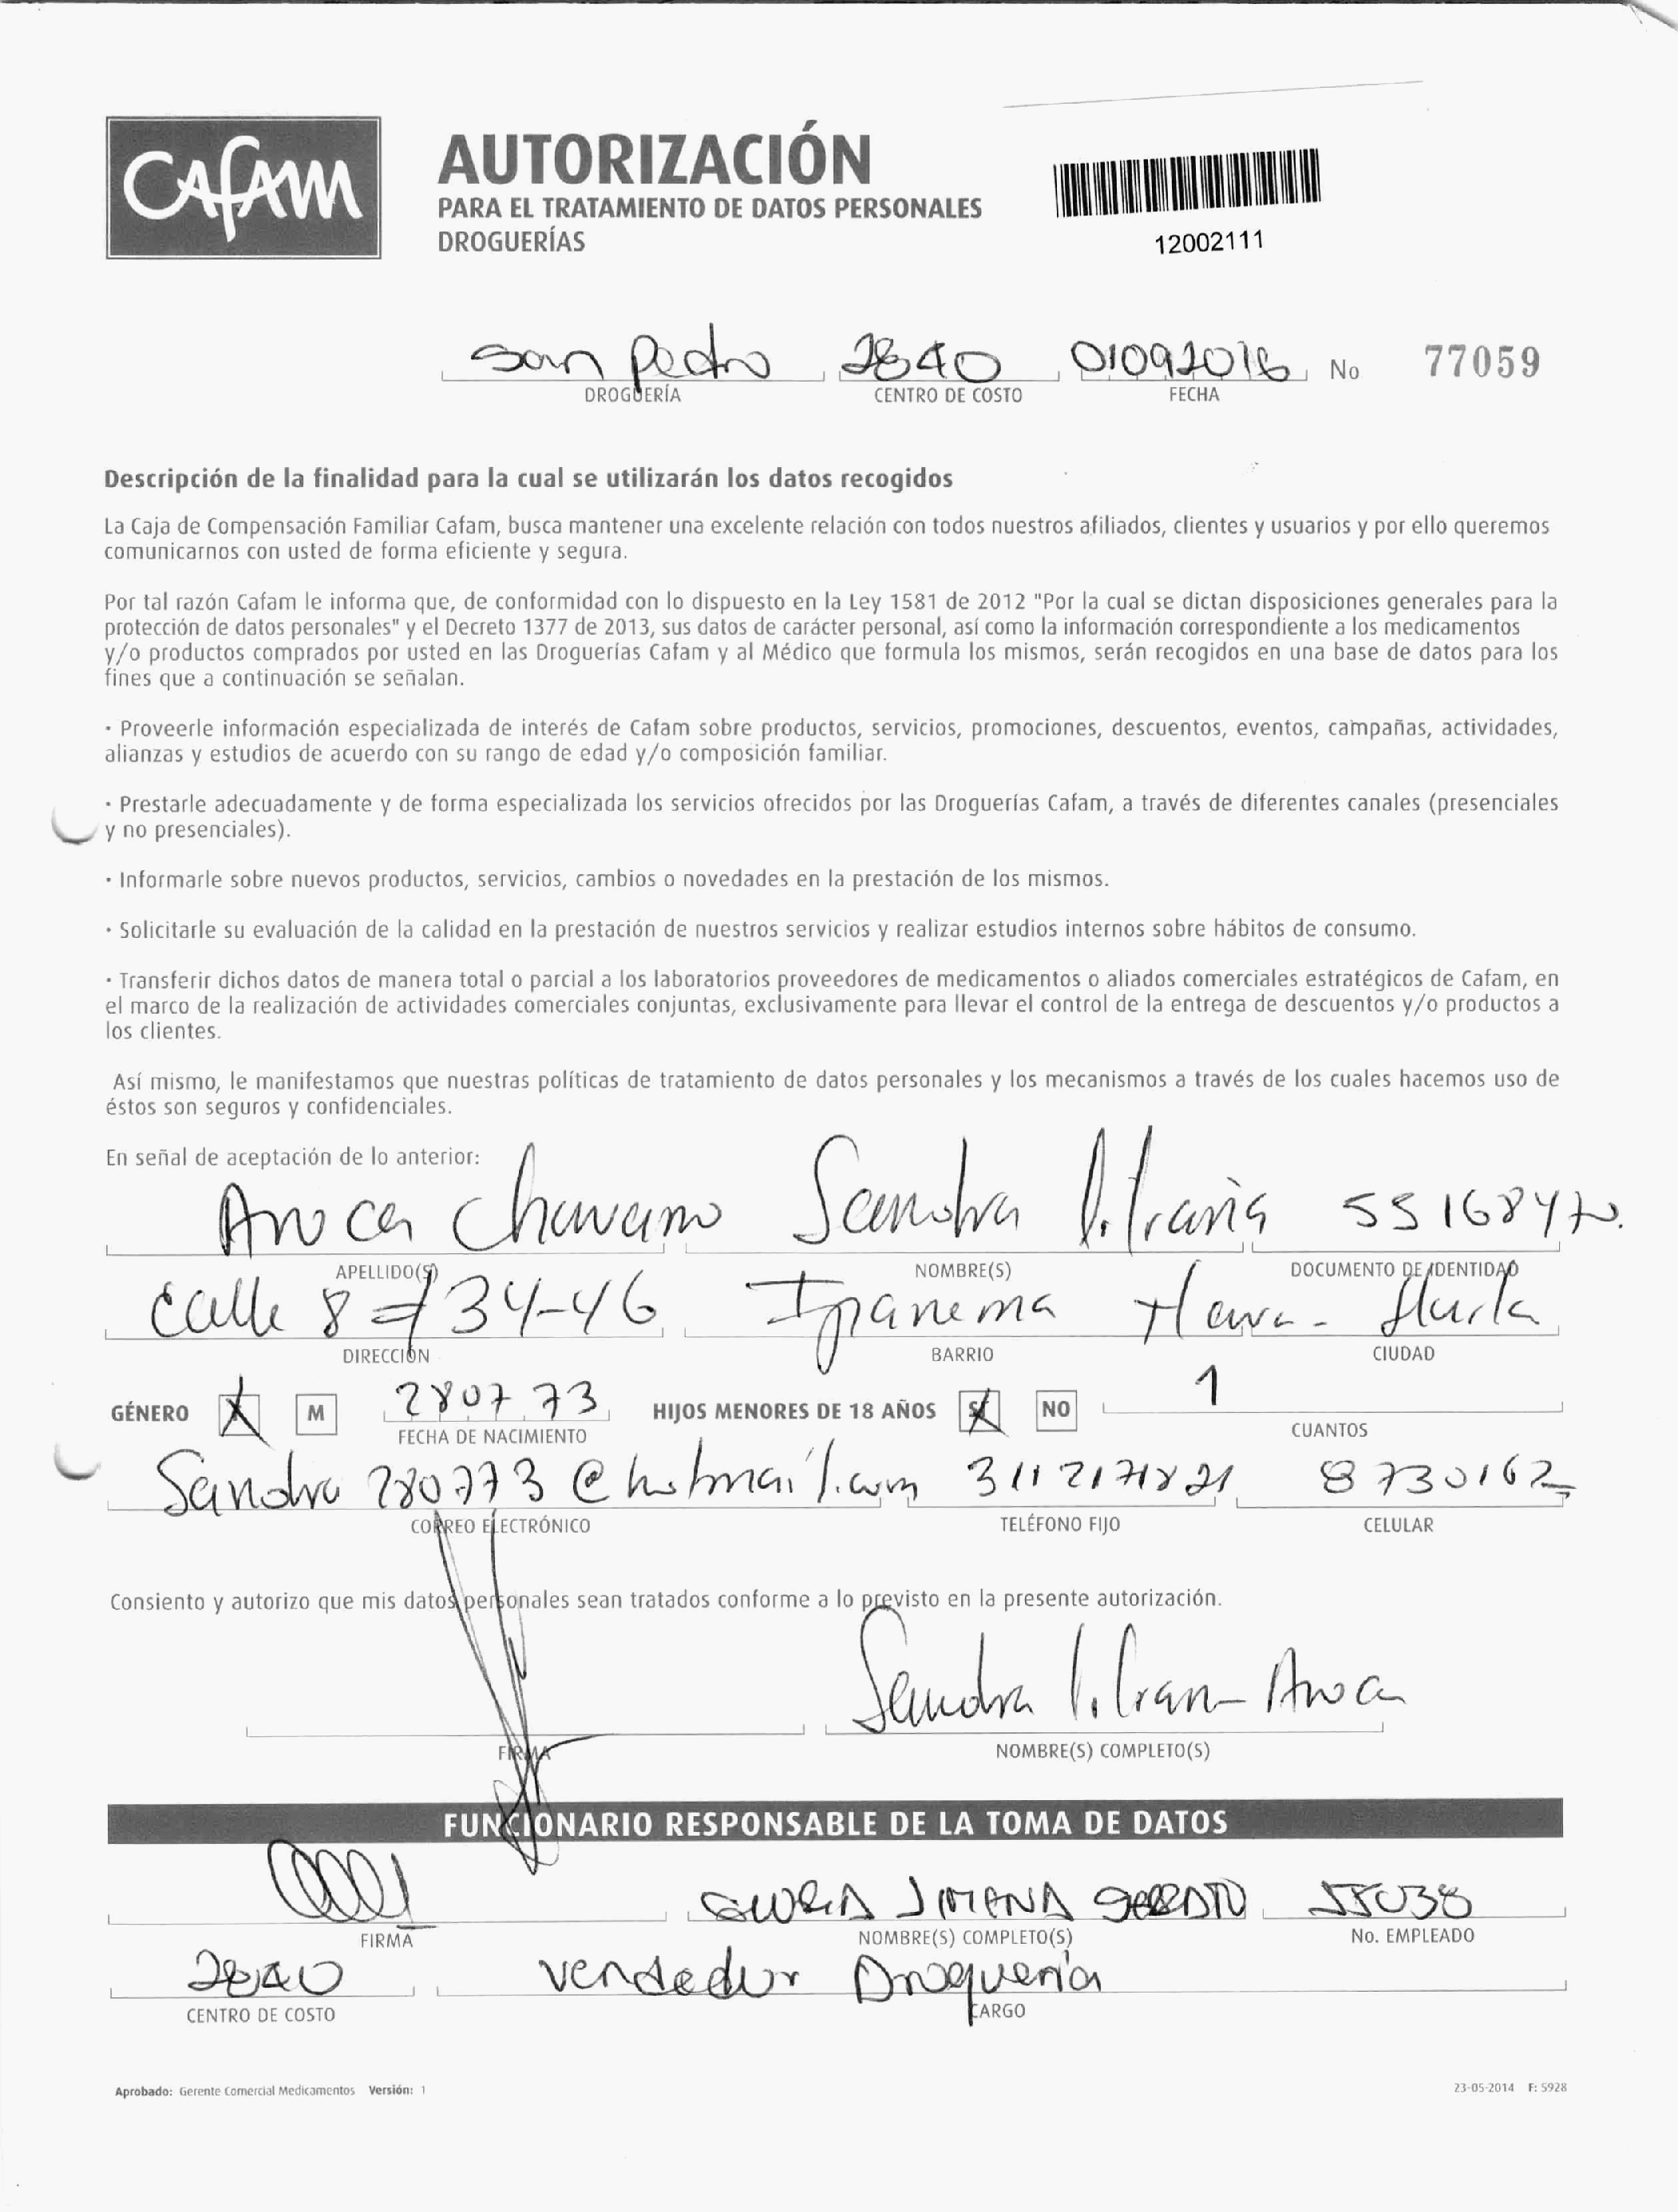 CAFAM
AUTORIZACIÓN
PARA EL TRATAMIENTO DE DATOS PERSONALES
DROGUERÍAS
12002111
San Pedro 2840 01092016 No 77059
DROGUERÍA CENTRO DE COSTO FECHA
Descripción de la finalidad para la cual se utilizarán los datos recogidos
La Caja de Compensación Familiar Cafam, busca mantener una excelente relación con todos nuestros afiliados, clientes y usuarios y por ello queremos
comunicarnos con usted de forma eficiente y segura.
Por tal razón Cafam le informa que, de conformidad con lo dispuesto en la Ley 1581 de 2012 "Por la cual se dictan disposiciones generales para la
protección de datos personales" y el Decreto 1377 de 2013, sus datos de carácter personal, así como la información correspondiente a los medicamentos
y/o productos comprados por usted en las Droguerías Cafam y al Médico que formula los mismos, serán recogidos en una base de datos para los
fines que a continuación se señalan.
· Proveerle información especializada de interés de Cafam sobre productos, servicios, promociones, descuentos, eventos, campañas, actividades,
alianzas y estudios de acuerdo con su rango de edad y/o composición familiar.
· Prestarle adecuadamente y de forma especializada los servicios ofrecidos por las Droguerías Cafam, a través de diferentes canales (presenciales
y no presenciales).
· Informarle sobre nuevos productos, servicios, cambios o novedades en la prestación de los mismos.
· Solicitarle su evaluación de la calidad en la prestación de nuestros servicios y realizar estudios internos sobre hábitos de consumo.
· Transferir dichos datos de manera total o parcial a los laboratorios proveedores de medicamentos o aliados comerciales estratégicos de Cafam, en
el marco de la realización de actividades comerciales conjuntas, exclusivamente para llevar el control de la entrega de descuentos y/o productos a
los clientes.
Así mismo, le manifestamos que nuestras políticas de tratamiento de datos personales y los mecanismos a través de los cuales hacemos uso de
éstos son seguros y confidenciales.
En señal de aceptación de lo anterior:
Aroca Chavarro Sandra Liliana
APELLIDO(S) NOMBRE(S) DOCUMENTO DE IDENTIDAD
Calle 8 # 34-46 Ipanema Huila
DIRECCIÓN BARRIO CIUDAD
GÉNERO M 280773 HIJOS MENORES DE 18 AÑOS SI NO 1
FECHA DE NACIMIENTO CUANTOS
Sandra280773@hotmail.com 8730162
CORREO ELECTRÓNICO TELÉFONO FIJO CELULAR
Consiento y autorizo que mis datos personales sean tratados conforme a lo previsto en la presente autorización.
Sandra Liliana Aroca
FIRMA NOMBRE(S) COMPLETO(S)
FUNCIONARIO RESPONSABLE DE LA TOMA DE DATOS
JIMENA 55038
FIRMA NOMBRE(S) COMPLETO(S) No. EMPLEADO
2840 vendedor Droguería
CENTRO DE COSTO CARGO
Aprobado: Gerente Comercial Medicamentos Versión: 1 23-05-2014 F: 5928